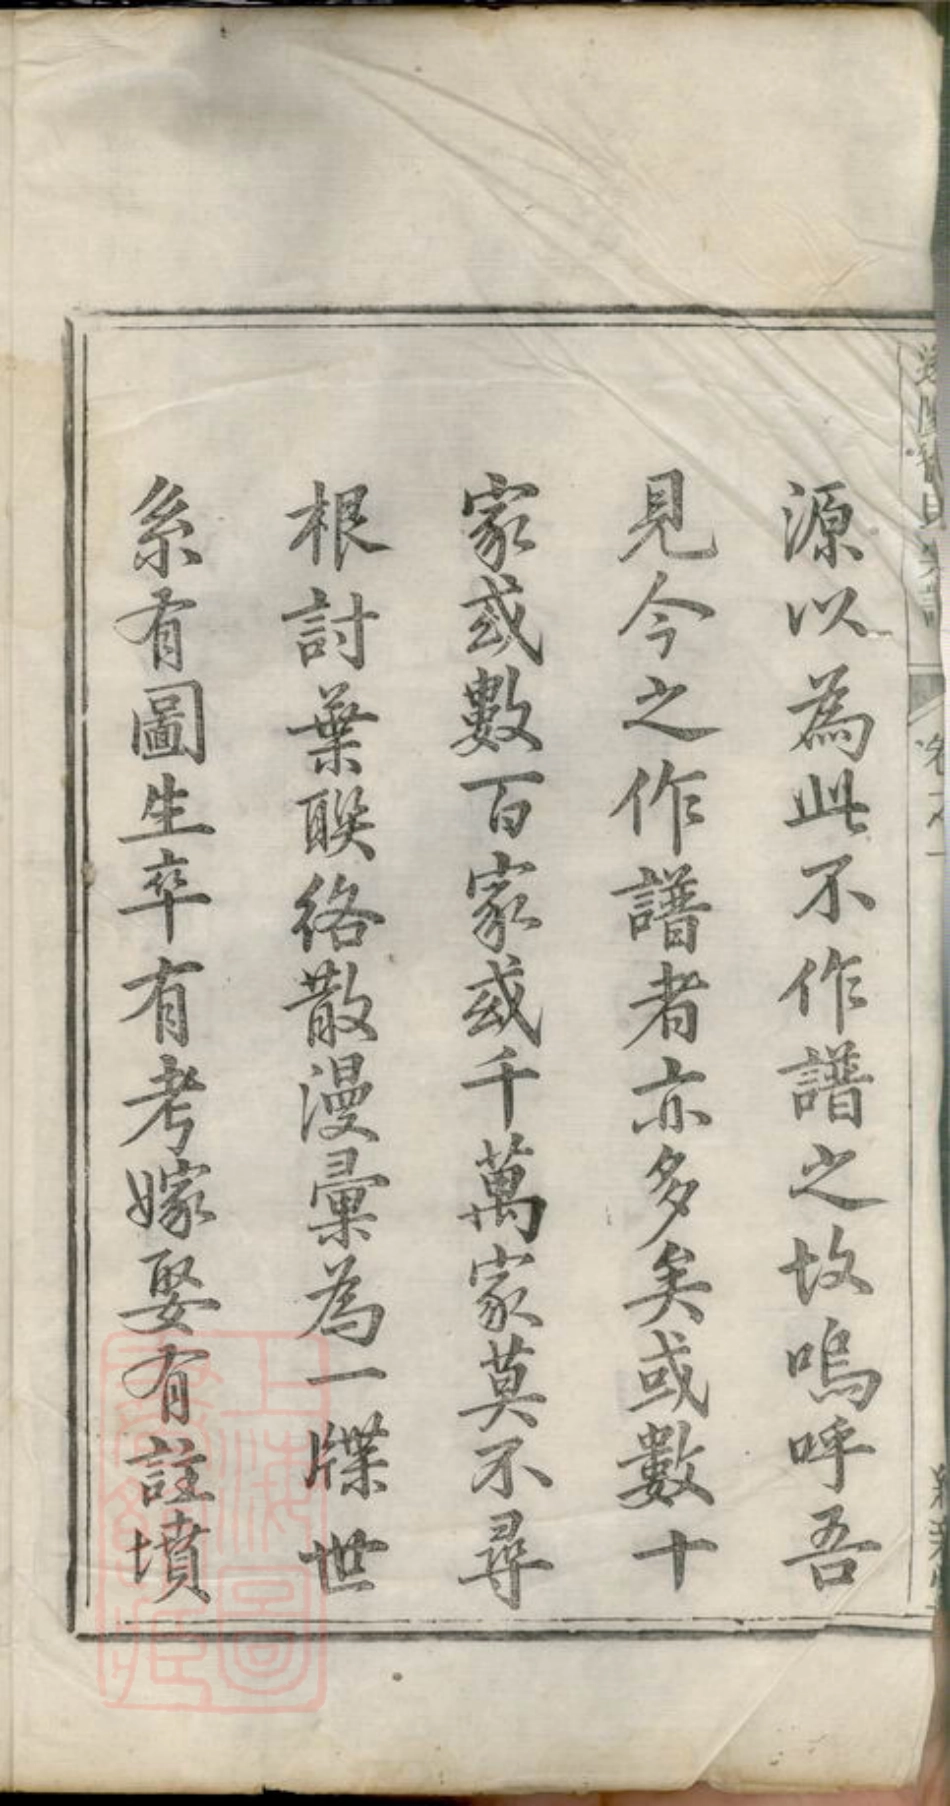 源以為此不作譜之故嗚呼吾
見今之作譜者亦多矣或數十
家或數百家或千萬家莫不尋
根討葉聯絡散漫彙為一牒世
系有圖生卒有考嫁娶有註墳
上海圖書館藏